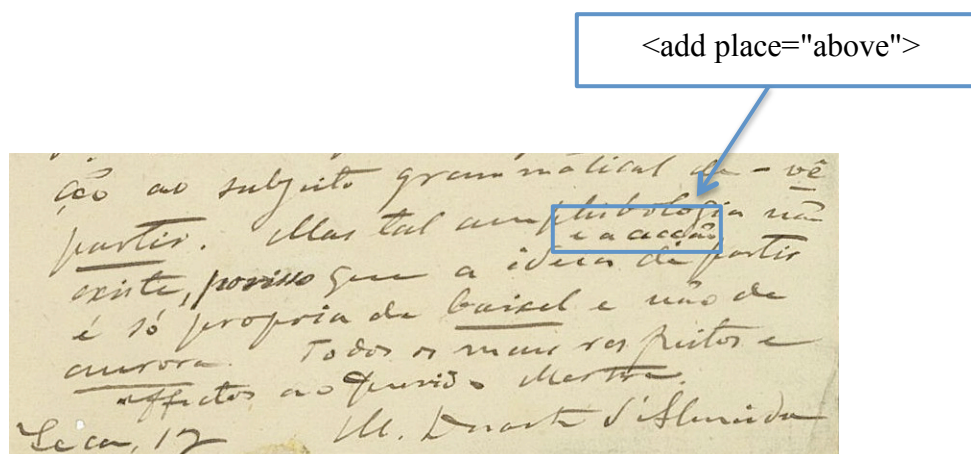 <add place="above">
ção ao subjeito grammatical de - vê
partir. Mas tal amphibologia não
e a acção
existe, porisso que a ideia de partir
é só propria de baixel e não de
aurora. Todos os mais respeitos e
affectos ao querido Mestre.
Leça, 17 M. Duarte d'Almeida